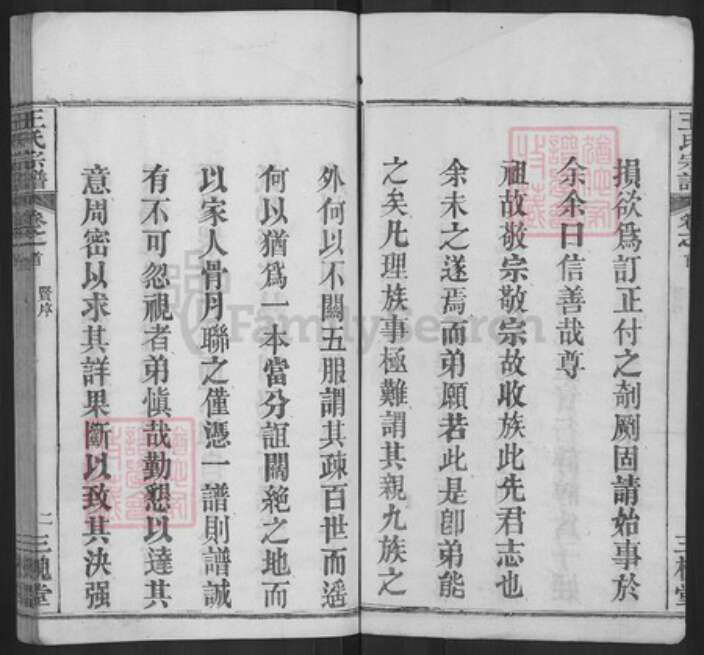 損欲爲訂正付之剞劂固請始事於
余余曰信善哉尊
祖故敬宗敬宗故收族此先君志也
余未之遂焉而弟願若此是卽弟能
之矣凡理族事極難謂其親九族之
外何以不關五服謂其疎百世而遥
何以猶爲一本當分詛闊絶之地而
以家人骨丹聯之僅憑一譜則譜誠
有不可忽視者弟愼哉勤懇以達其
意周密以求其詳果斷以致其決强
王氏宗譜
卷之首
賢序
二
三槐堂
FamilySearch